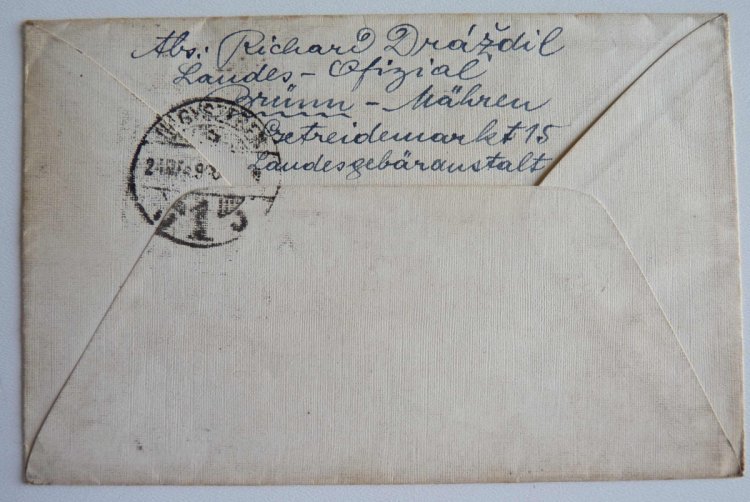 Abs: Richard Dráždil
Landes-Ofizial
Brünn - Mähren
Getreidemarkt 15
Landesgebäranstalt
NAGYSZEBEN